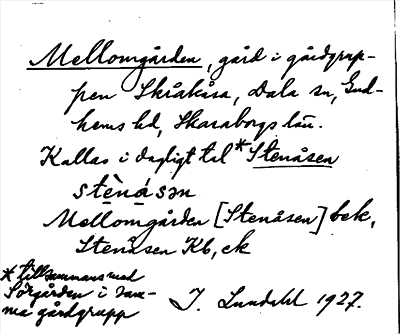 Mellomgården, gård i gårdgrup-
pen Skråkåsa, Dala sn, Gud-
hems hd, Skaraborgs län.
Kallas i dagligt tal *Stenåsen
stènásən
Mellomgården [Stenåsen] bek,
Stenåsen Kb, ek
* tillsammans med
Sörgården i sam-
ma gårdgrupp
J. Lundahl 1927.